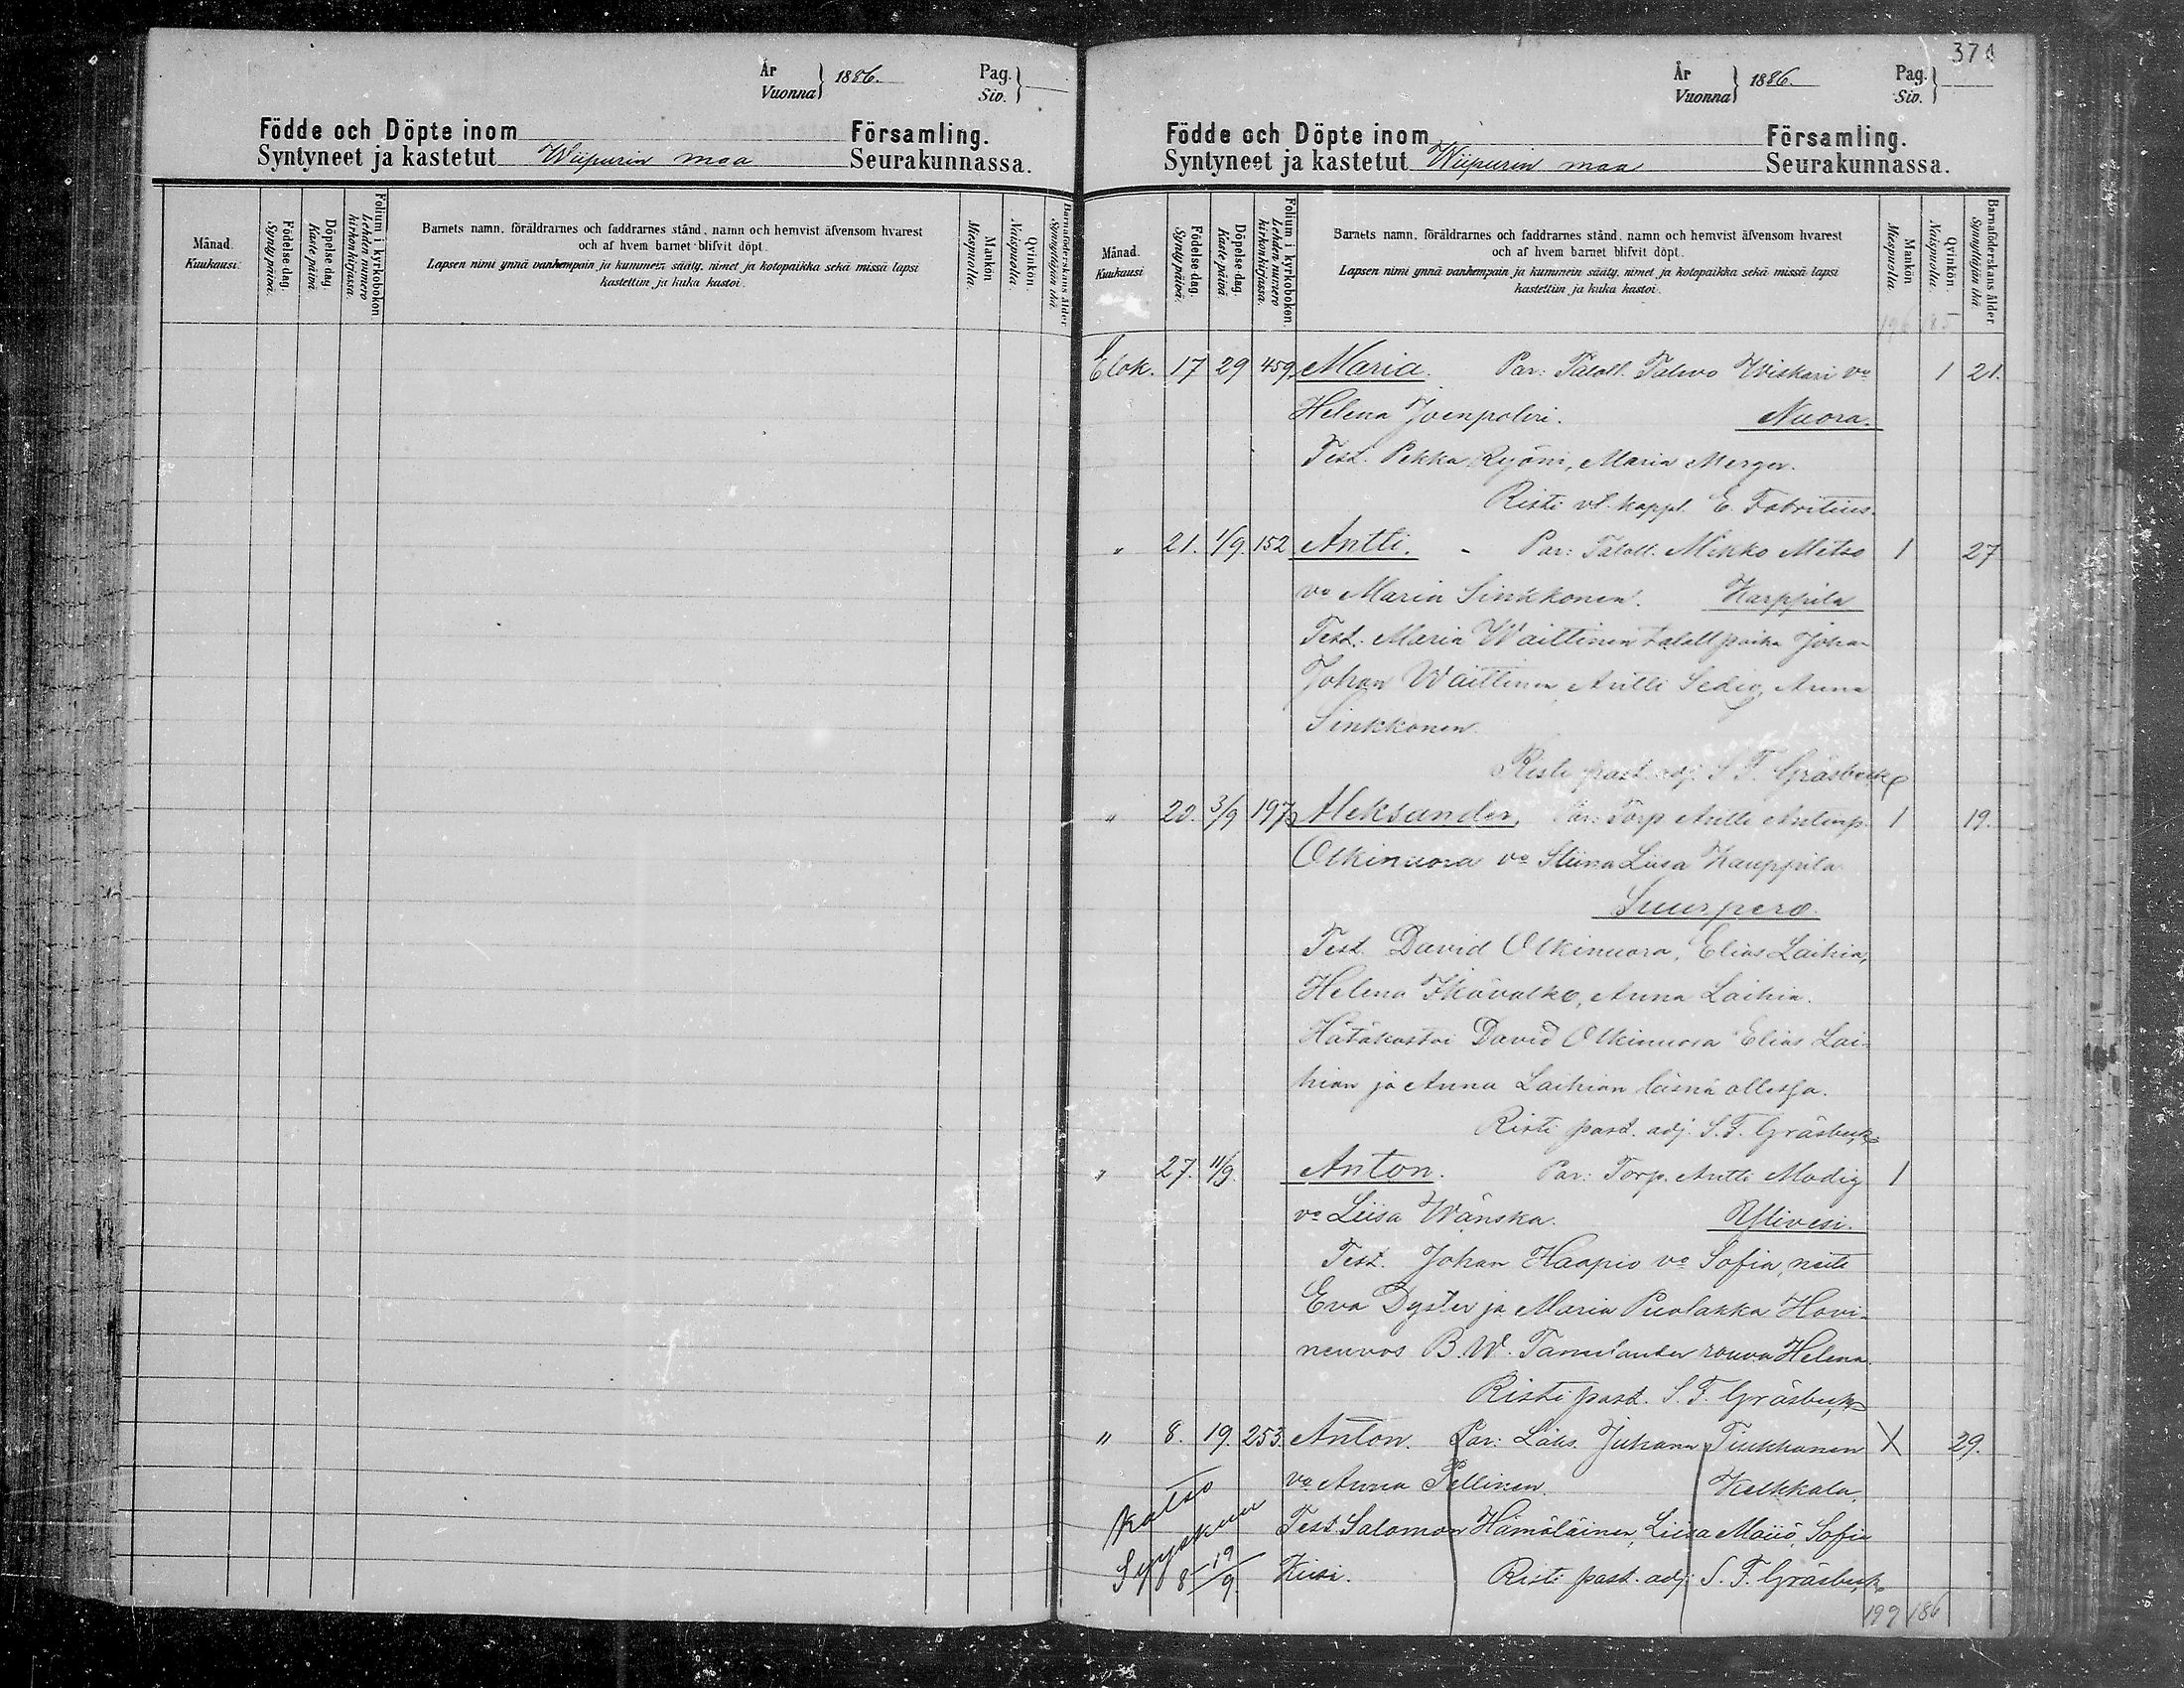 År
Vuonna } 1886.
Pag.
Siv. }
Födde och Döpte inom Församling.
Syntyneet ja kastetut Wiipurin maa Seurakunnassa.
Månad.
Kuukausi.
Födelse dag.
Synty päivä.
Döpelse dag.
Kaste päivä.
Folium i kyrkoboken.
Lehden numero kirkonkirjassa.
Barnets namn, föräldrarnes och faddrarnes stånd, namn och hemvist äfvensom hvarest
och af hvem barnet blifvit döpt.
Lapsen nimi ynnä vanhempain ja kummein sääty, nimet ja kotopaikka sekä missä lapsi
kastettiin ja kuka kastoi.
Mankön.
Miespuolia.
Qvinkön.
Naispuolia.
Barnaföderskans ålder.
Synnyttäjän ikä.
374
År
Vuonna } 1886.
Pag.
Siv. }
Födde och Döpte inom Församling.
Syntyneet ja kastetut Wiipurin maa Seurakunnassa.
Månad.
Kuukausi.
Födelse dag.
Synty päivä.
Döpelse dag.
Kaste päivä.
Folium i kyrkoboken.
Lehden numero kirkonkirjassa.
Barnets namn, föräldrarnes och faddrarnes stånd, namn och hemvist äfvensom hvarest
och af hvem barnet blifvit döpt.
Lapsen nimi ynnä vanhempain ja kummein sääty, nimet ja kotopaikka sekä missä lapsi
kastettiin ja kuka kastoi.
Mankön
Miespuolia.
Qvinkön.
Naispuolia.
Barnaföderskans ålder
Synnyttäjän ikä.
Elok. 17 29 459 Maria. Par: Taloll. Wiskari vo 1 21.
Helena Joenpolvi. Nuora.
Test. Pekka Ryöni, Maria Merger.
Risti vt. kappl. E. Fabritius.
" 21. 1/9. 152 Antti. - Par: Taloll. Mikko Metso 1 27
vo Maria Sinkkonen. Karppila
Test. Maria Waittinen talollpoika Johan
Johan Waittinen, Antti Sedig, Anna
Sinkkonen.
Risti past. adj. S. F. Gräsbeck
" 3/9 197 Aleksander, Par: Torp Antti Antinp. 1 19.
Olkinuora vo Stiina Liisa Kauppila
Suurpero.
Test. David Olkinuora, Elias Laihia,
Helena Ikävalko, Anna Laihia.
Hätäkastoi David Olkinuora Elias Lai-
hian ja Anna Laihian läsnä ollessa.
Risti past. adj. S. F. Gräsbeck
" 27. 11/9. Anton. Par: Torp. Antti Modig 1
vo Liisa Wänska. Ylivesi.
Test. Johan Haapio vo Sofia, neiti
Eva Dyster ja Maria Puolakka Hovi-
neuvos B. W. rouva Helena.
Risti past. S. F. Gräsbeck
" 8. 19. 253. Anton. Par: Loks. Juhana Tiukkanen X 29.
vo Anna Pellinen. Kelkkala.
Test. Salomon Hämäläinen, Liisa Mäiiö, Sofia
Kiisi. Risti past. adj. S. F. Gräsbeck
Katso
Syyskuu
8 19/9.
199 186